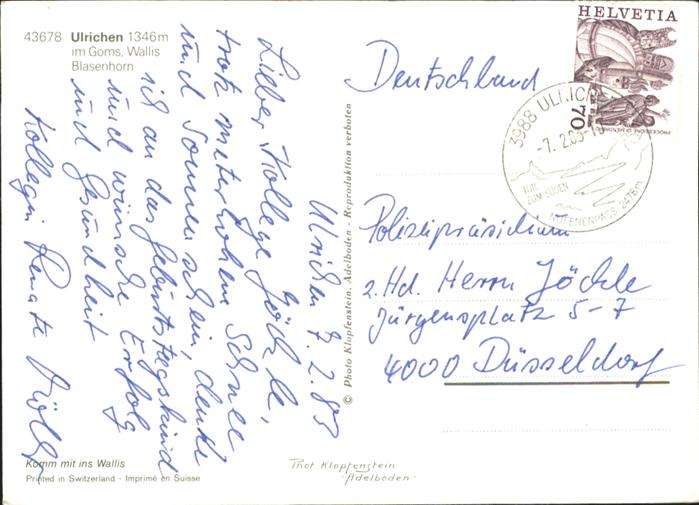 43678 Ulrichen 1346m
im Goms, Wallis
Blasenhorn
Ulrichen 7.2.83
Lieber Kollege Jöckle,
trotz meterhohem Schnee
und Sonnenschein, denke
ich an das Geburtstagskind
und wünsche Erfolg
und Gesundheit
Kollegin Renate
Komm mit ins Wallis
Printed in Switzerland - Imprimé en Suisse
© Photo Klopfenstein, Adelboden - Reproduktion verboten
Phot Klopfenstein
"Adelboden"
HELVETIA
70
3988 ULRICHEN
-7.2.83-
NUFENENPASS 2478m
Deutschland
Polizeipräsidium
z.Hd. Herrn Jöckle
Jürgensplatz 5-7
4000 Düsseldorf